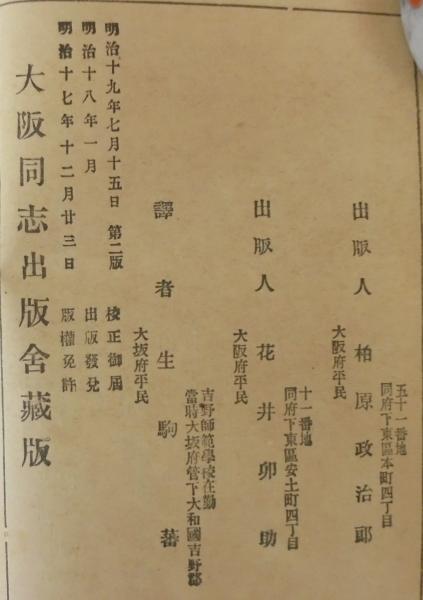 大阪同志出版舍藏版
明治十七年十二月廿三日 版權免許
明治十八年一月 出版發兌
明治十九年七月十五日 第二版 校正御届
大坂府平民
譯者 生駒蕃
當時大坂府管下大和國吉野郡
吉野師範學校在勤
大阪府平民
出版人 花井卯助
同府下東區安土町四丁目
十一番地
大阪府平民
出版人 柏原政治郎
同府下東區本町四丁目
五十一番地